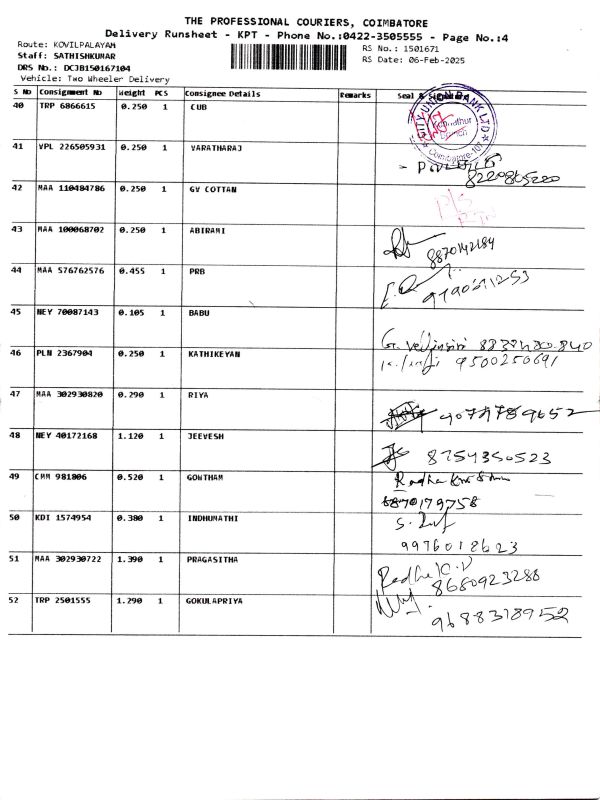 THE PROFESSIONAL COURIERS, COIMBATORE
Delivery Runsheet - KPT - Phone No.:0422-3505555 - Page No.:4
Route: KOVILPALAYAM
RS No.: 1501671
Staff: SATHISHKUMAR
RS Date: 06-Feb-2025
DRS No.: DCJB150167104
Vehicle: Two Wheeler Delivery
S No Consignment No Weight PCS Consignee Details Remarks Seal &
40 TRP 6866615 0.250 1 CUB
CITY UNION BANK LTD
Branch
Coimbatore-107
41 VPL 226505931 0.250 1 VARATHARAJ
8220865220
42 MAA 110484786 0.250 1 GV COTTAN
43 MAA 100068702 0.250 1 ABIRAMI
8870142184
44 MAA 576762576 0.455 1 PRB
45 NEY 70087143 0.105 1 BABU
46 PLN 2367904 0.250 1 KATHIKEYAN
9500250691
47 MAA 302930820 0.290 1 RIYA
9077789652
48 NEY 40172168 1.120 1 JEEVESH
8754350523
49 CMM 981806 0.520 1 GONTHAM
8870179758
50 KDI 1574954 0.380 1 INDHUMATHI
9976018623
51 MAA 302930722 1.390 1 PRAGASITHA
8680923288
52 TRP 2501555 1.290 1 GOKULAPRIYA
9688318952